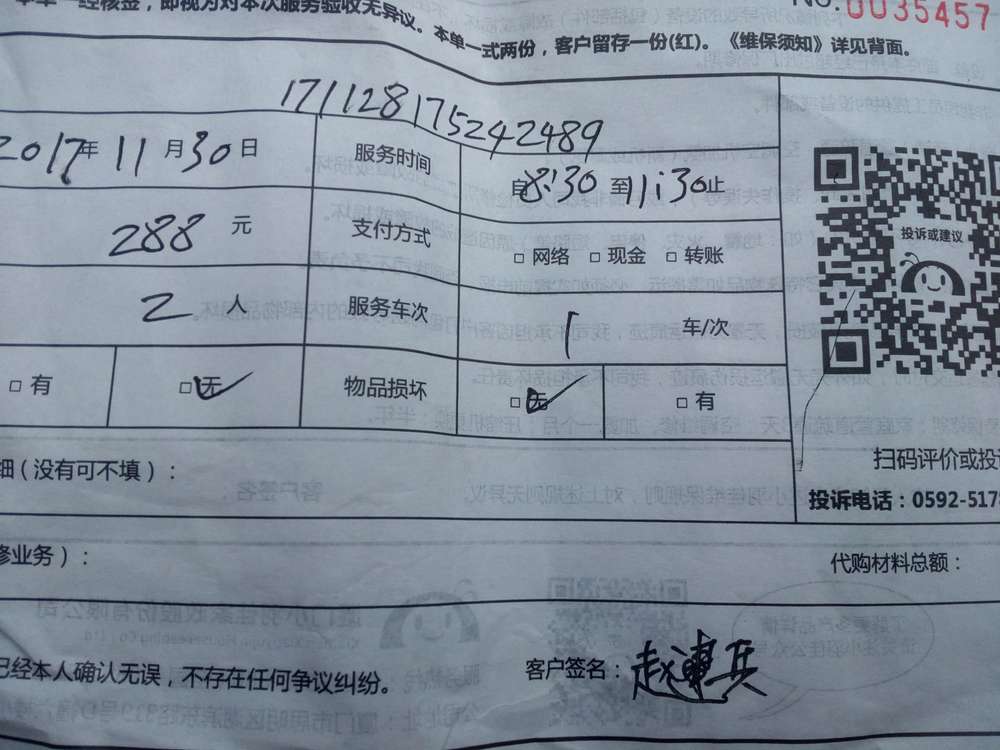 本单一经核签,即视为对本次服务验收无异议。本单一式两份,客户留存一份(红)。《维保须知》详见背面。
NO.0035457
171128175242489
2017年11月30日 服务时间 自8:30至11:30止
288元 支付方式 □网络 □现金 □转账
投诉或建议
2人 服务车次 1 车/次
□有 □无✓ 物品损坏 □无✓ □有
细(没有可不填):
扫码评价或投
投诉电话:0592-517
修业务):
代购材料总额:
已经本人确认无误,不存在任何争议纠纷。
客户签名:赵連兵